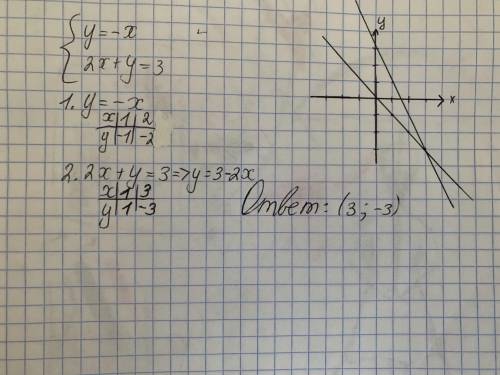 y=-x
2x+y=3
1. y=-x
x|1|2
y|-1|-2
2. 2x+y=3=>y=3-2x
x|1|3
y|1|-3
Ответ: (3;-3)
y
x